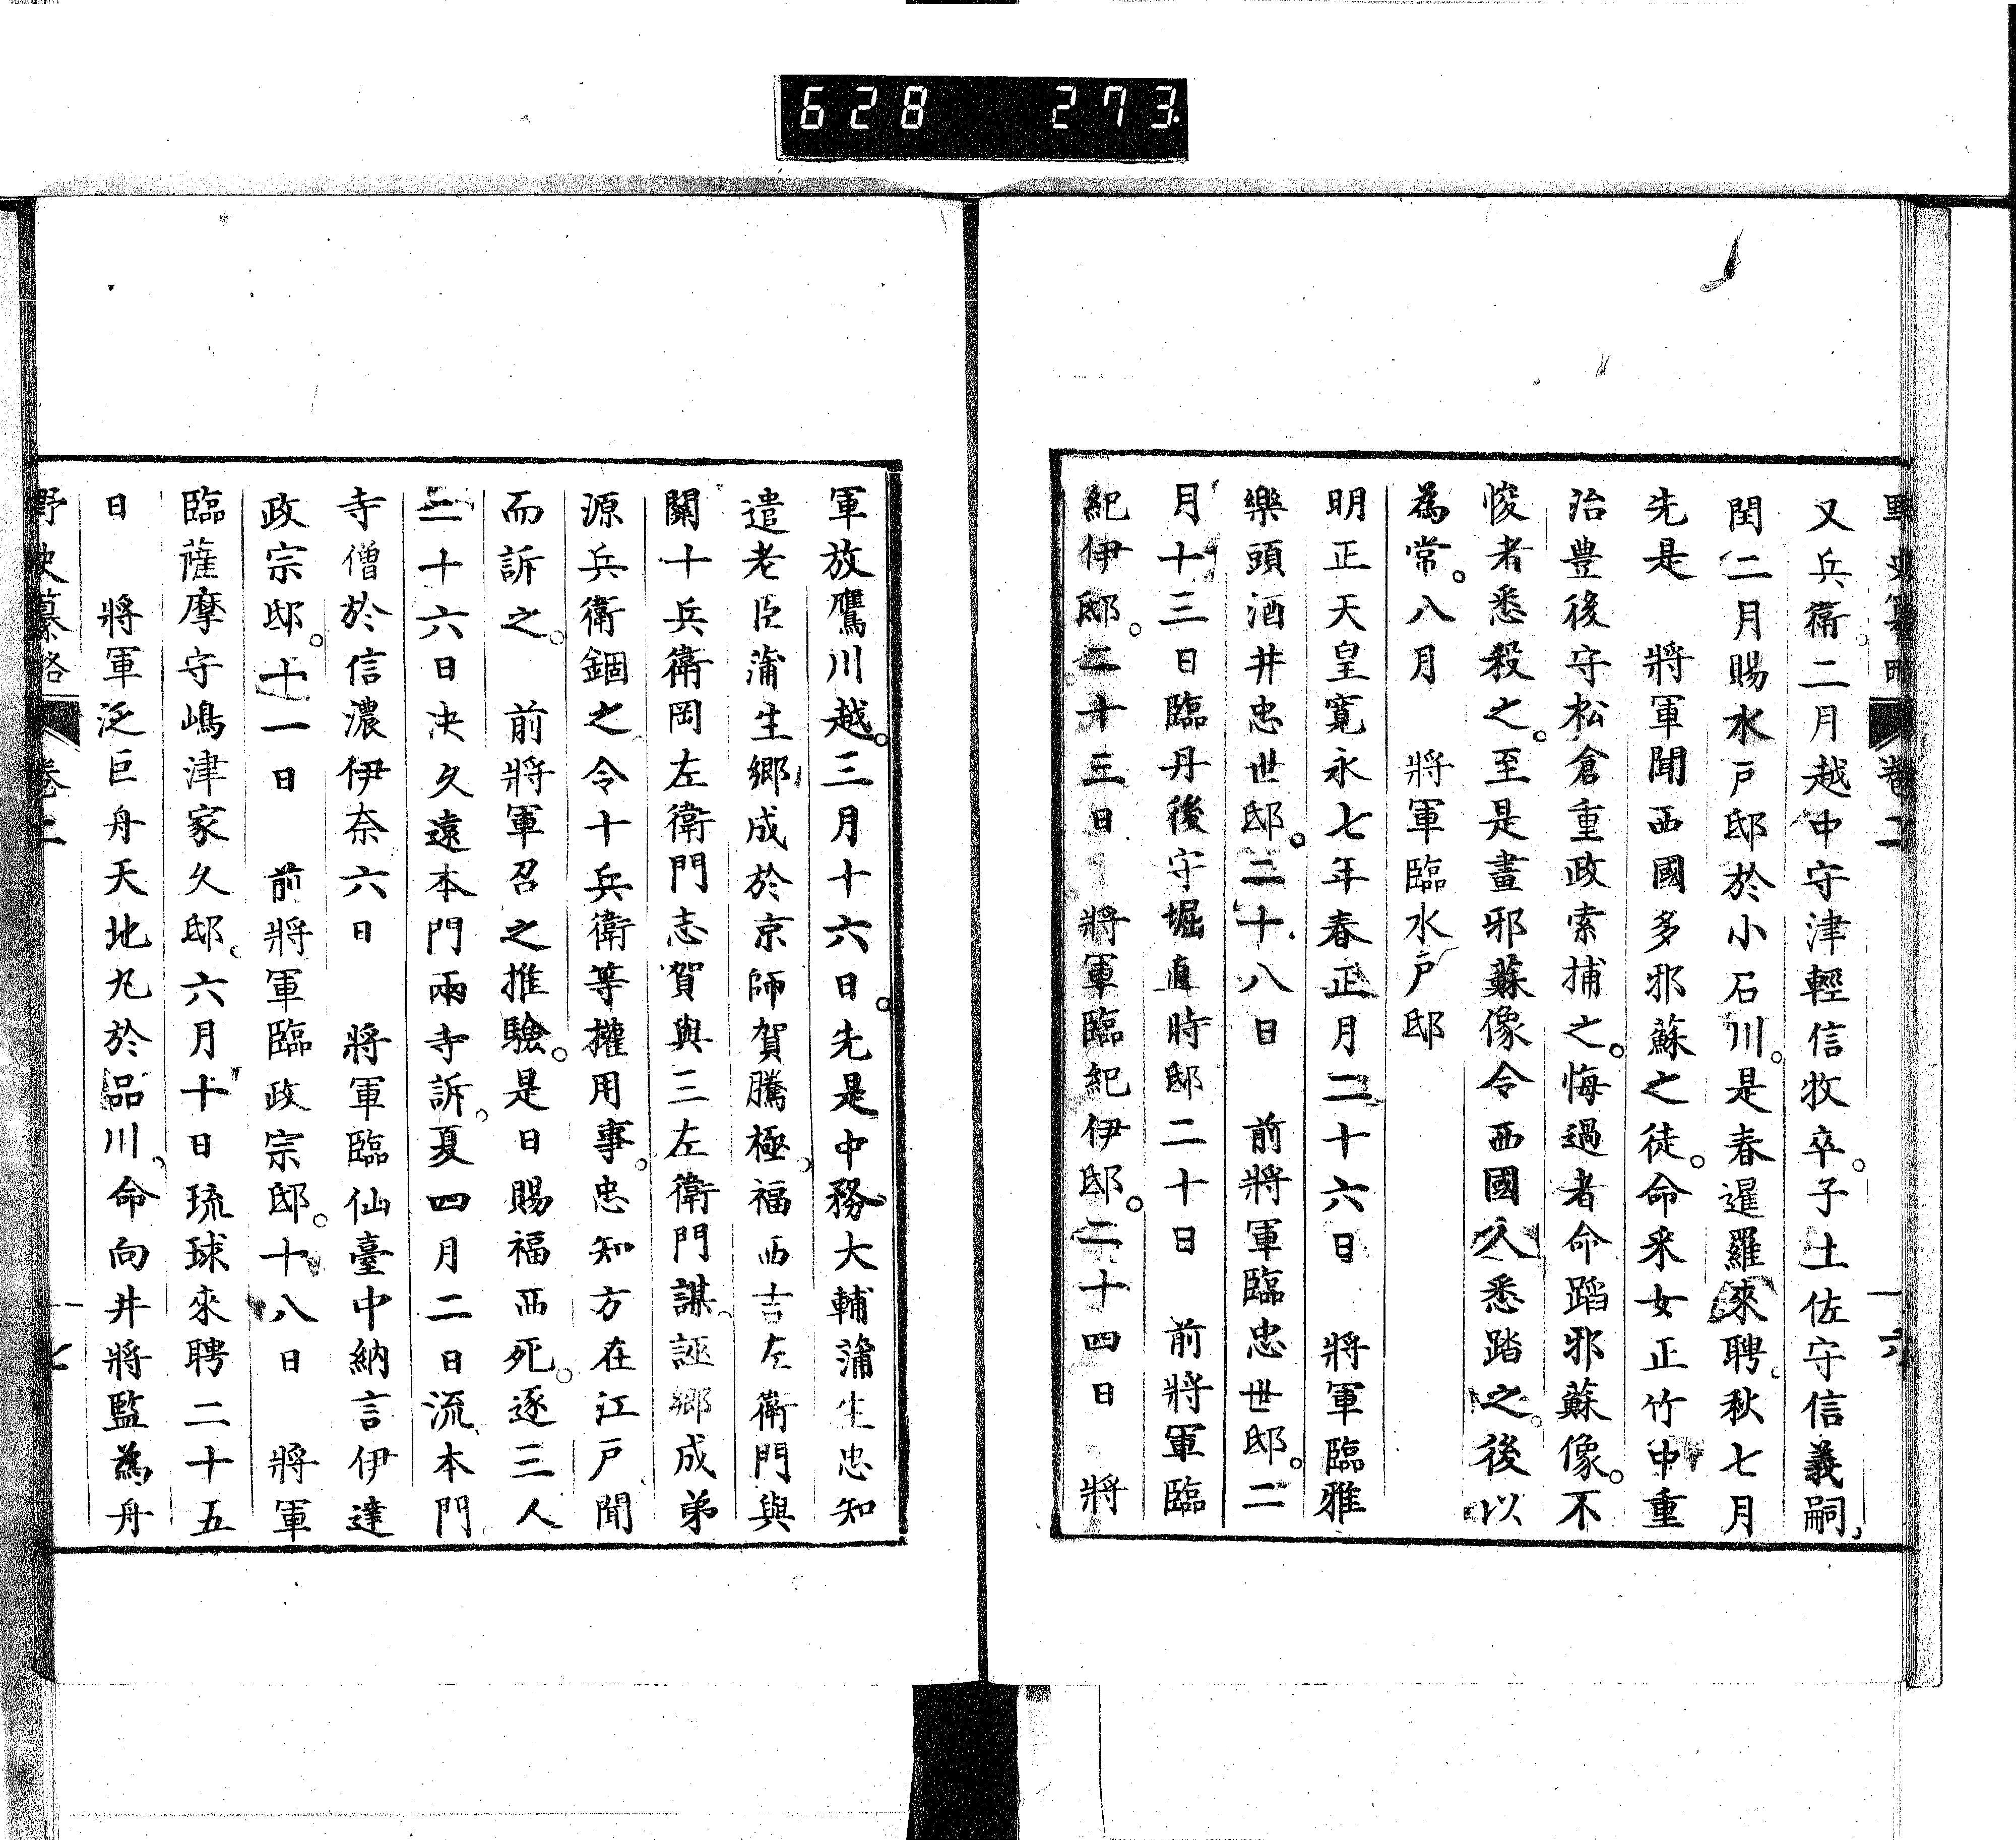 628 273
野史纂略 卷二 十六
又兵衛二月越中守津輕信牧卒。子土佐守信義嗣、
閏二月賜水戸邸於小石川。是春暹羅來聘。秋七月
先是 將軍聞西國多邪蘇之徒。命釆女正竹中重
治豊後守松倉重政索捕之。悔過者命蹈邪蘇像。不
悛者悉殺之。至是畫邪蘇像令西國人悉踏之。後以
為常。八月 將軍臨水戸邸
明正天皇寛永七年春正月二十六日 將軍臨雅
樂頭酒井忠世邸。二十八日 前將軍臨忠世邸。二
月十三日臨丹後守堀直時邸二十日 前將軍臨
紀伊邸。二十三日 將軍臨紀伊邸。二十四日 將
軍放鷹川越。三月十六日。先是中務大輔蒲生忠知
遣老臣蒲生郷成於京師賀騰極。福西吉左衛門與
關十兵衛岡左衛門志賀與三左衛門謀誣郷成弟
源兵衛錮之令十兵衛等權用事。忠知方在江戸聞
而訴之。 前將軍召之推驗。是日賜福西死。逐三人
二十六日决久遠本門兩寺訴。夏四月二日流本門
寺僧於信濃伊奈六日 將軍臨仙臺中納言伊達
政宗邸。十一日 前將軍臨政宗邸。十八日 將軍
臨薩摩守嶋津家久邸。六月十日琉球來聘二十五
日 將軍泛巨舟天地丸於品川。命向井將監為舟
野史纂略 卷二 十七